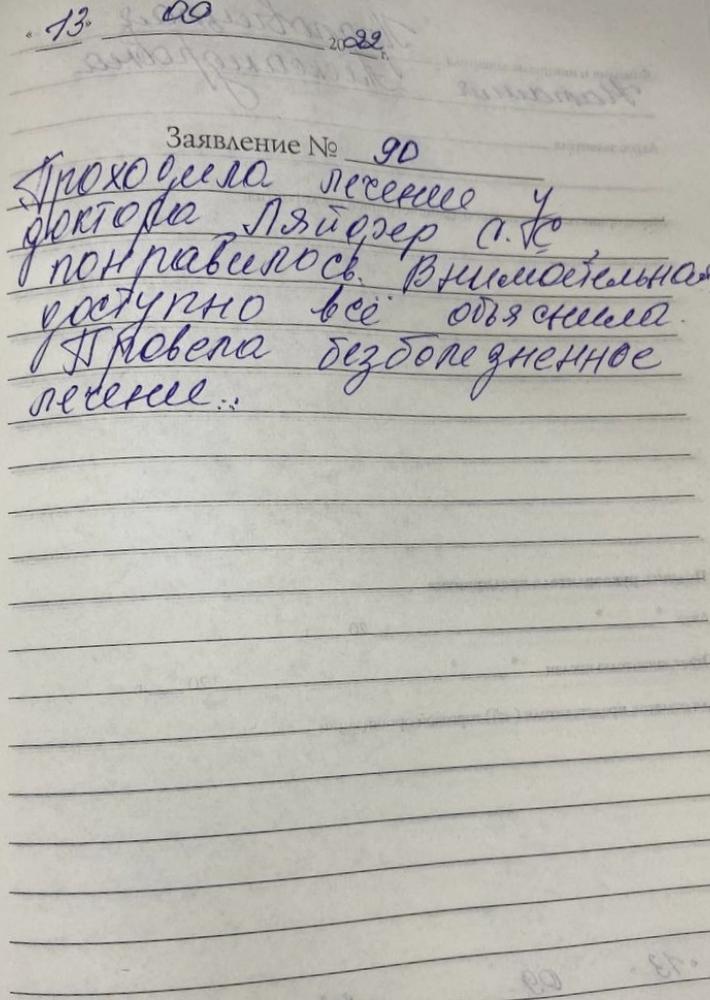 « 13 » 09 2022 г.
Заявление № 90
Проходила лечение у
доктора Ляйфер А.К,
понравилось. Внимательная
доступно всё объяснила.
Провела безболезненное
лечение..